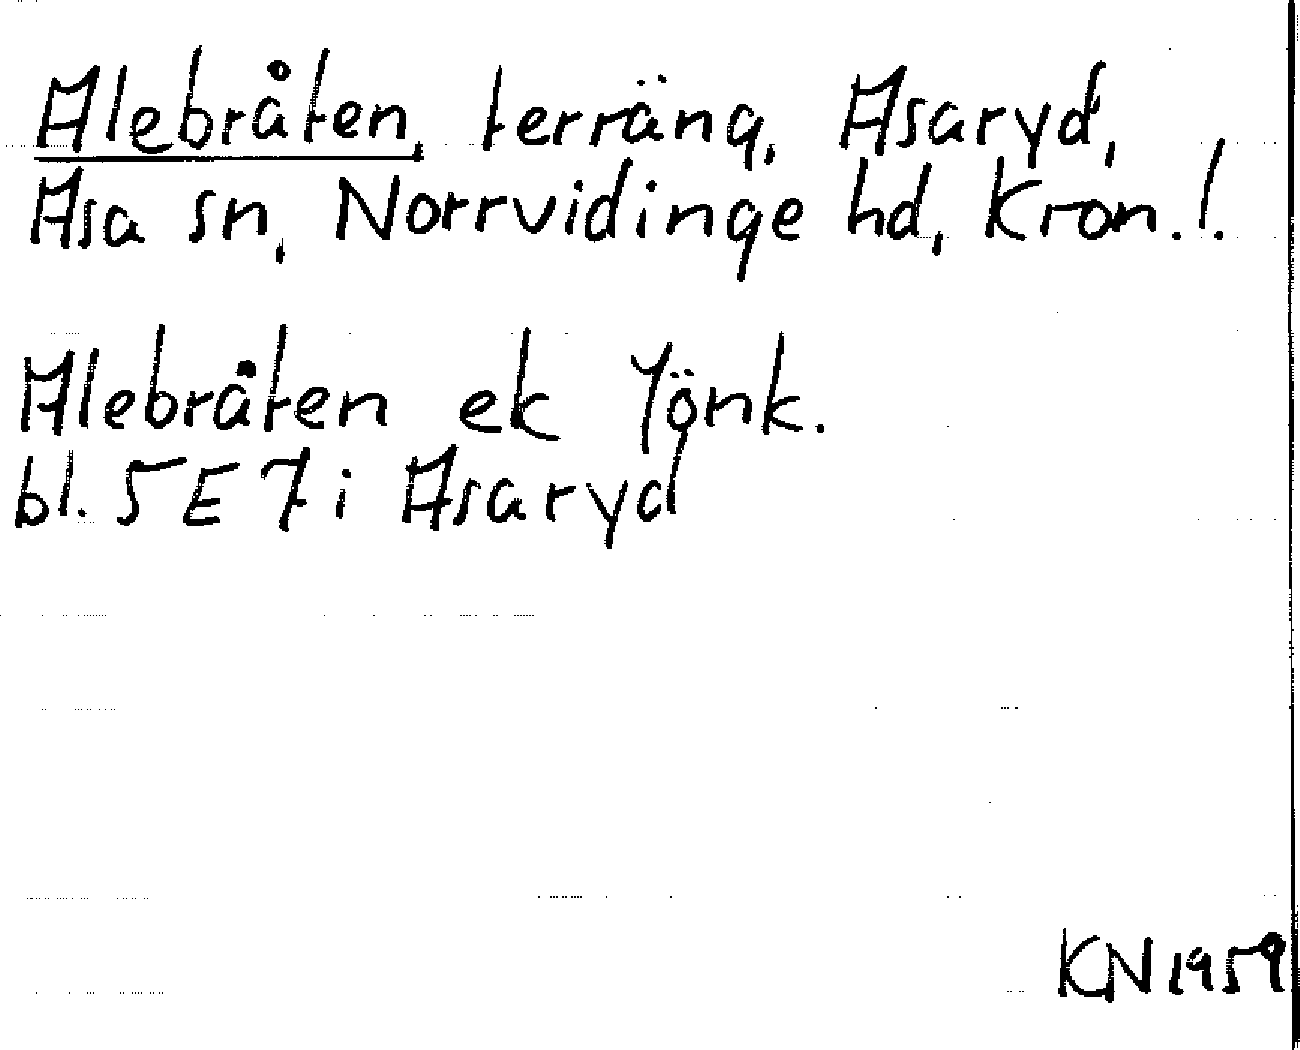 Alebråten, terräng, Asaryd,
Asa sn, Norrvidinge hd, Kron. l.
Alebråten ek Jönk.
bl. 5 E 7 i Asaryd
KN 1959